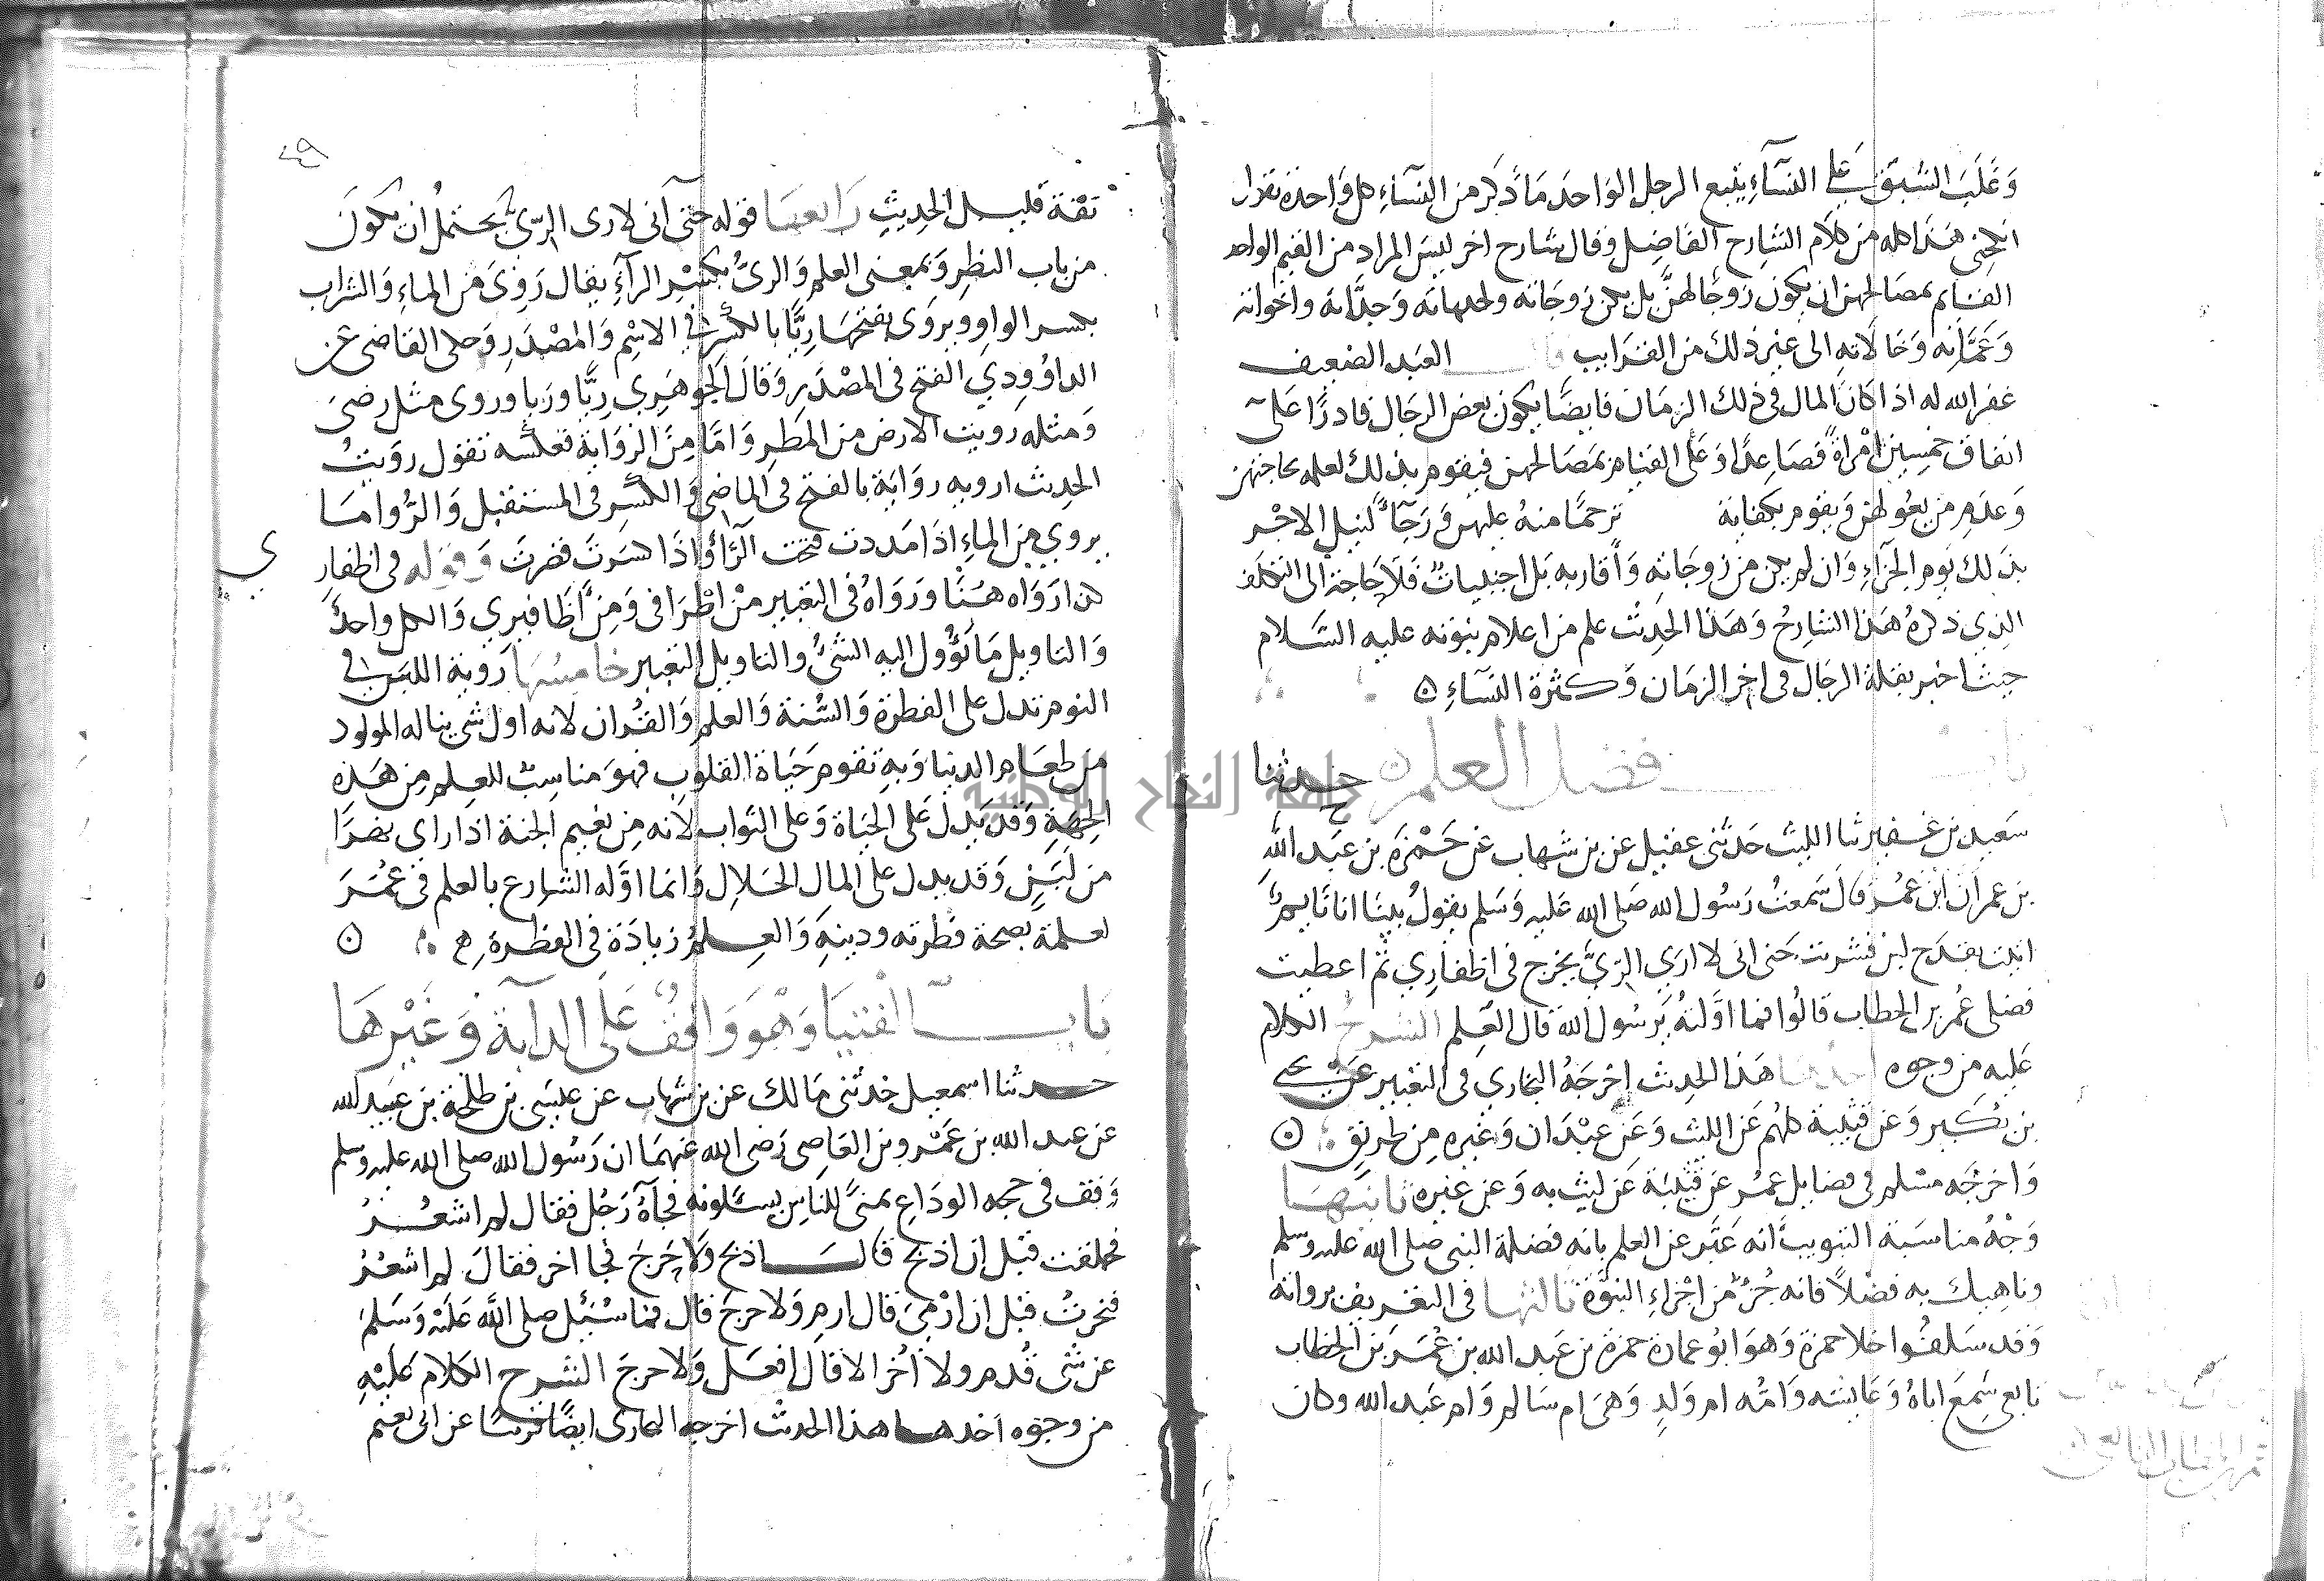 وَغَلَبَ الشبق على النسآء يتبع الرجل الواحد مَا ذكر من النسآء كل وَاحدة تقول
انكحنى هَذا كله من كلام الشارح الفاضل وقال شارح اخر ليسَ المراد من القيم الواحد
القايم بمصَالحهن ان يكون زوجًا لهنَّ بل يكن زوجَاته وامهاته وَجدَّاته واخواته
وَعَمَّاته وَخالاته الى غير ذلك من القرايب قال العَبد الضعيف
غفر الله له اذا كانَ المال فى ذلك الزمَان فايضًا يكون بعض الرجَال قادرًا على
انفاق خمسِين امْرَاةً فصَاعدًا وَعَلى القيام بمصَالحهن فيقوم بذلك لعلمه بحاجتهن
وَعدم من يعُولهن وَيقوم بكفايته ترحمًا منهُ عليهن وَرَجَآءً لنيل الاجْر
بذلك يوم الجزآءِ وَان لم يكن من زوجَاتِه وَأقاربه بَل اجنبيات فلا حَاجة الى التكلف
الذِي ذكرهُ هَذا الشارحُ وَهَذا الحدِيث علم من اعلام نبوته عليه السَّلام
حيث اخبر بقلة الرجَال فى اخر الزمَان وَكثرة النسَآءِ ه
باب فضل العلم ه حَدثنا
سَعيد بن عُفير ثنا الليث حَدَّثنى عقيل عن بن شهاب عَن حَمْزَة بن عَبد الله
بن عمر ان ابن عُمَر قالَ سَمعتُ رَسُول الله صَلى الله عَليه وَسَلم يقولُ بينَا انا نَايمٌ
اتيت بقدَح لبن فشربت حَتى انى لا ارَى الرِيَّ يخرج فى اظفارِي ثم اعطيت
فضلى عُمر بن الخطاب قالُوا فما اوَّلتهُ يَرسُول الله قال العِلم الشرحُ الكلام
عَليه من وجوه احدهَا هَذا الحديث اخرجَهُ البخارِي فى التعْبير عَن يحيى
بن بُكَير وَعن قتيبة كلهُم عَن الليث وَعَن عبْدَان وَغيره مِن طريق ه
وَاخرَجَه مسلم فى فضايل عُمر عَن قُتيبَة عَن ليث به وَعن غيره ثانيهَا
وَجْهُ مناسَبة التبويبُ انه عَبَّر عن العلم بانه فضلة النبى صَلى الله عَليه وسلم
وناهيك به فضْلاً فانه جُزْءٌ مّن اجْزاءِ النبُوَّة ثالثها فى التعْريف برواته
وَقد سَلفُوا خلا حمزة وَهوَ ابُو عمَارة حَمزة بن عَبد الله بن عُمَر بن الخطاب
تابعى سَمعَ اباهُ وَعَايشة وَامُّه ام وَلدٍ وَهىَ ام سَالم وَام عَبد الله وكان
٤٩
ثقة قليل الحَدِيثِ رَابعهَا قوله حَتى انى لا ارى الرِيّ يحتملُ ان يكونَ
من باب النظِر وَبمعنى العلم وَالرىُّ بكسْر الرآءِ يقال رَوِىَ من الماءِ وَالشراب
بكسر الواو ويروَى بفتحهَا رِيًّا بالكسْر فى الاسْم وَالمصْدَرِ وَحكى القاضى عن
الداوُودِي الفتح فى المصْدَر وَقالَ الجَوهَرِى رِيًّا وَرَيا وروى مثل رضىَ
وَمثله رويت الارض من المطر وَامَّا مِنَ الروَاية فعكسه تقول رويتُ
الحديث ارويه روَايَة بالفتح فى الماضى وَالكسْرِ فى المستقبل وَالرُّوا مَا
يروِي مِن الماءِ اذا مَددت فتحت الرَّا وَاذا كسَرتَ قصَرتَ وَقوله فى اظفارِ
ي
كذا رَوَاه هُنَا وَرَوَاهُ فى التعْبير مِن اطْرَافى وَمِن اَظافيرِي وَالكل واحدٌ
وَالتاوِيل مَا يَؤُول اليه الشىُ والتاويل التعْبير خامِسُهَا رُوية اللبَن فى
النوم تدل على الفطرة وَالسُّنة وَالعلم وَالقرُان لانه اول شى يناله المولود
من طعَام الدنيا وَبهِ تقوم حَيَاة القلوب فهوَ مناسِبٌ للعِلم مِن هَذِهِ
الجهَةِ وَقد يَدل عَلى الحيَاة وَعلى الثواب لانه مِن نعِيم الجنة اذا راى نهرًا
من لبَنٍ وَقد يدل على المال الحَلالِ وَانما اوَّله الشارع بالعلم فى عُمَرَ
لعلمهُ بصحَة فطرته ودينهِ وَالعِلمُ زيادَة فى الفطرة ه
بَابُ الفتيا وَهْوَ وَاقِفٌ عَلَى الدابّة وَغَيْرِهَا
حدثنا اسمعيل حَدثنى مَالك عن بن شهاب عن عيسَى بن طلحة بن عبَيد الله
عن عبد الله بن عَمْرو بن العَاصى رَضى الله عَنهمَا ان رَسُول الله صلى الله عليه وسلم
وَقف فى حجه الودَاع بمنًى للناسِ يسئلونه فجَاهُ رَجُل فقال لم اشعُر
فحلقت قبْل ان اذبح قالَ اذبح وَلا حَرجَ فجا اخر فقالَ لم اشعُرْ
فنحرتُ قبْل ان ارْمىَ قال ارمِ وَلا حرجَ قال فما سُئِل صلى الله عَليْه وَسَلمَ
عن شىٍ قُدم ولا اُخر الا قال افعَل وَلا حرجَ الشرح الكلام عَليْهِ
من وجوه اَحدهَا هَذا الحَديث اخرجه البخارى ايضًا قريبًا عن ابى نعيم
جامعة النجاح الوطنية